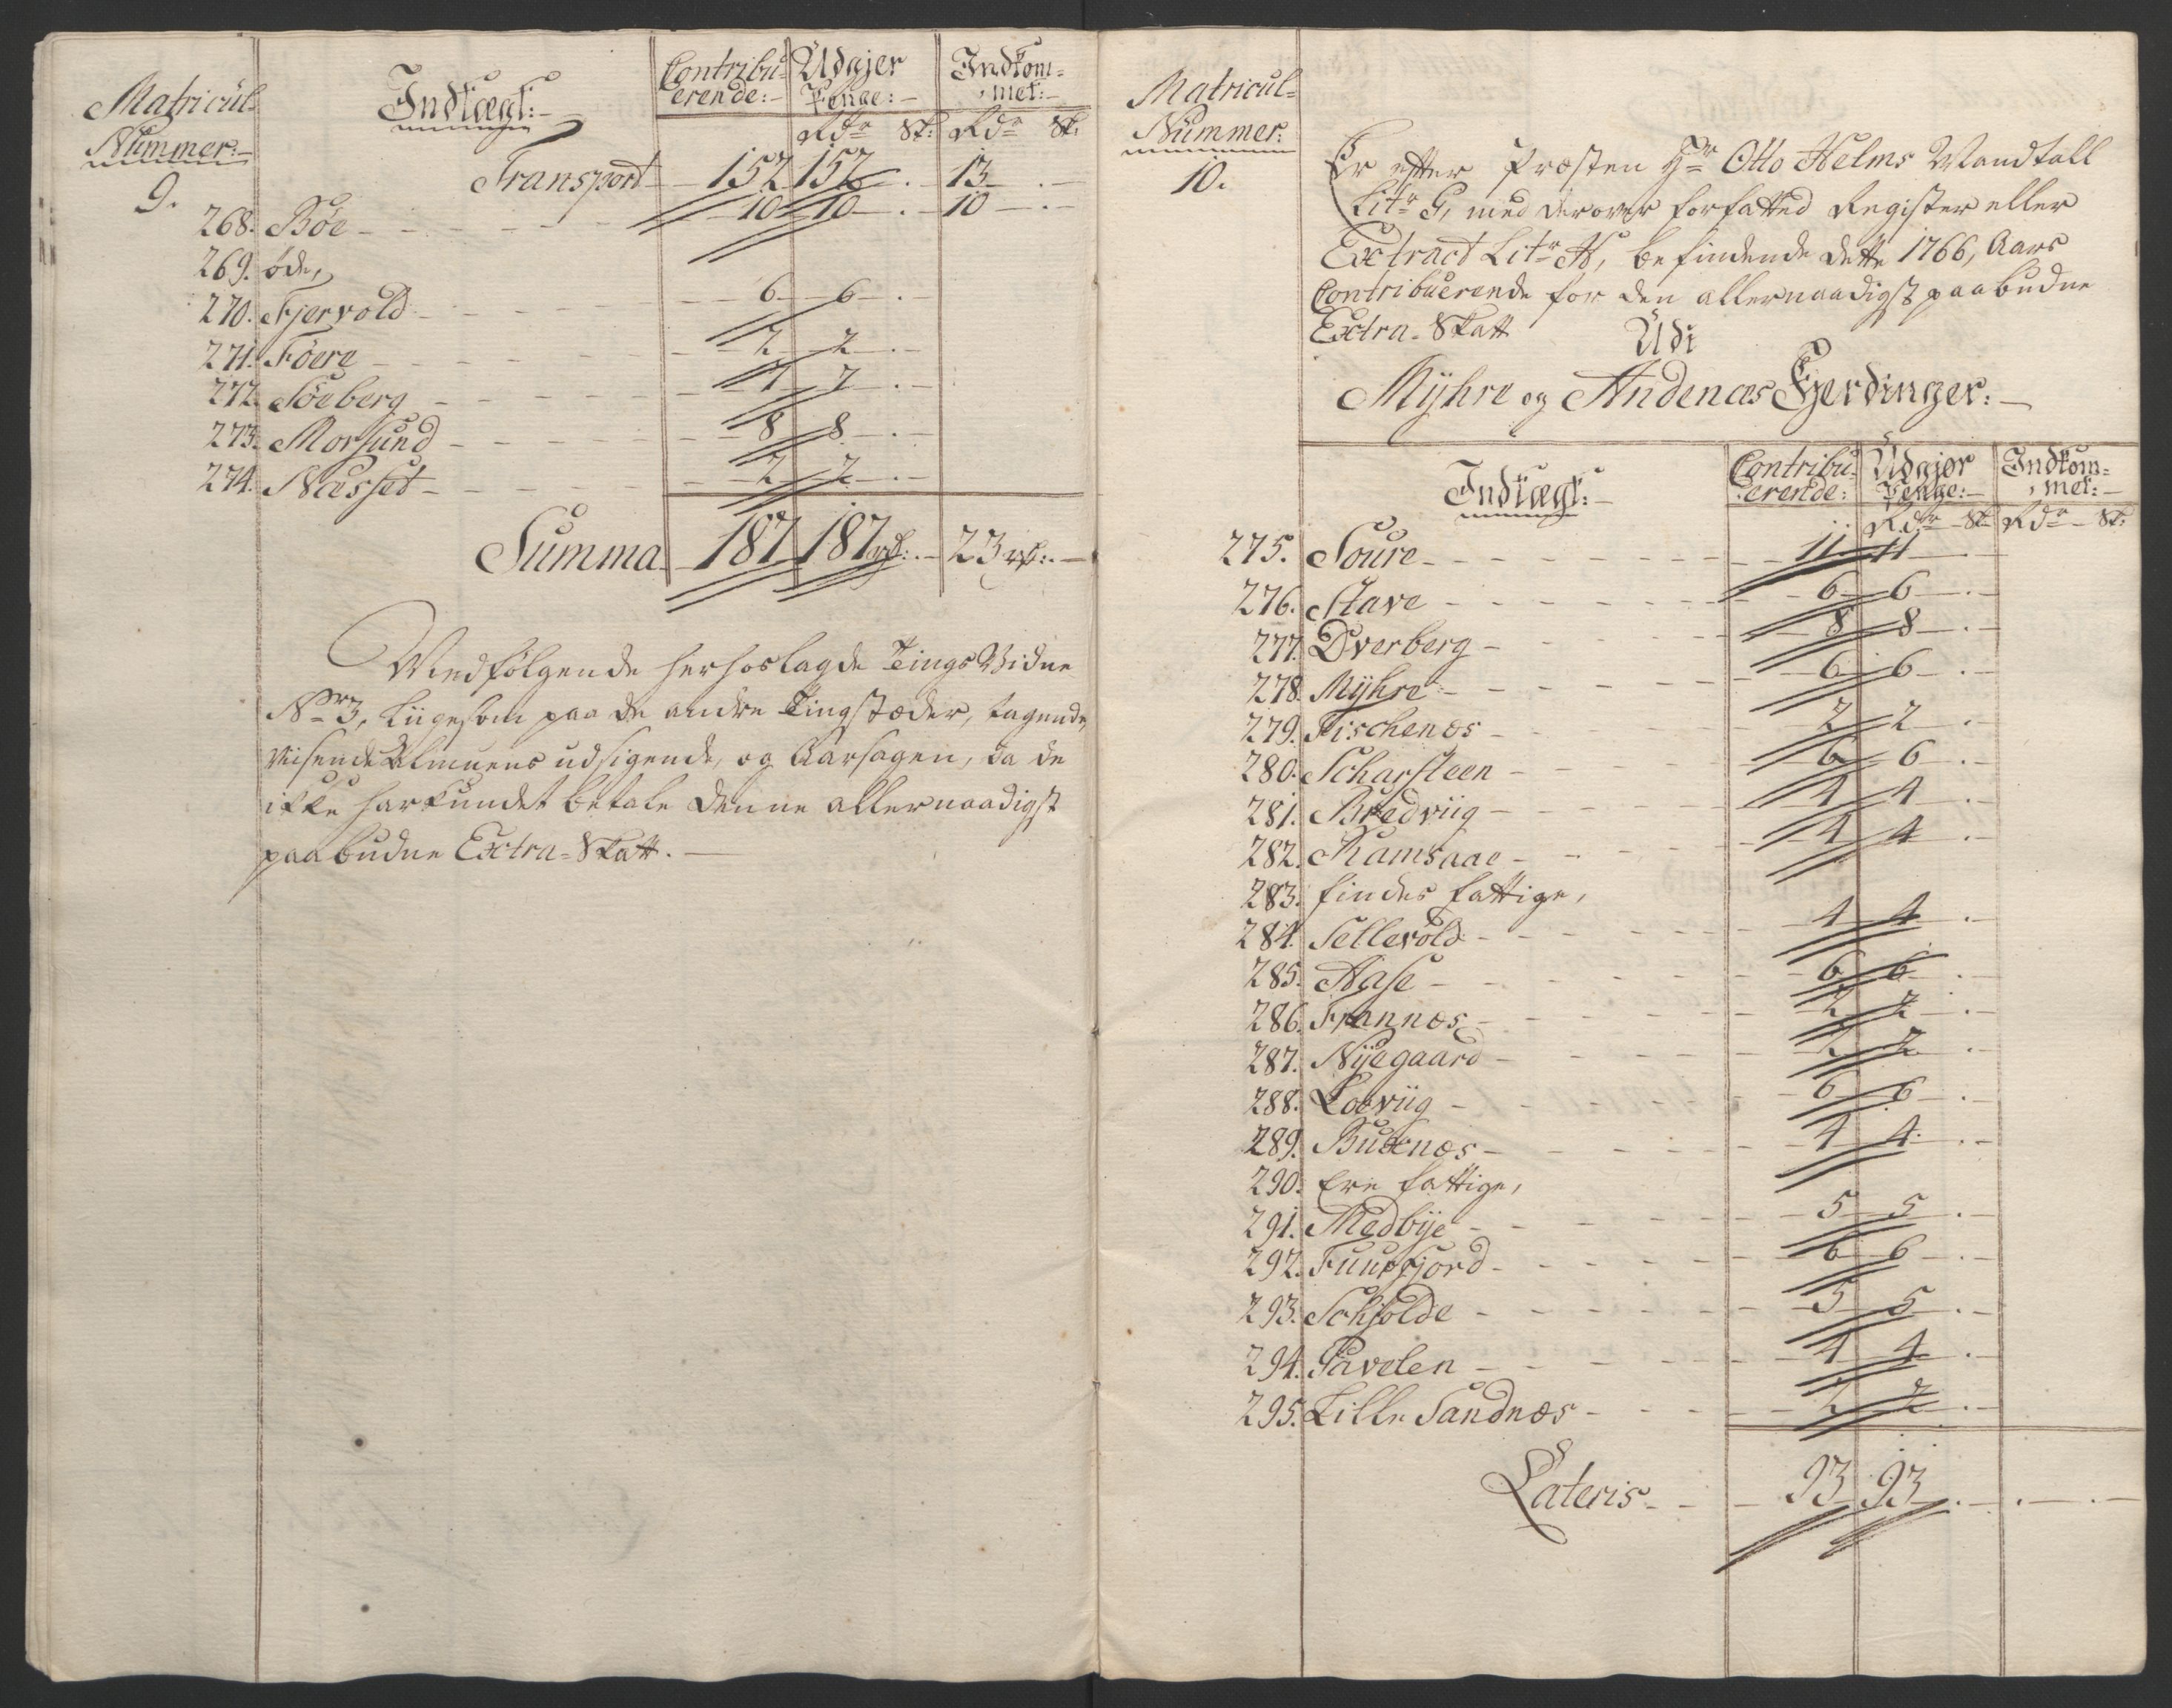 Matricul-
Nummer:-
9.
Indtægt:-
Contribu-
erende:-
Udgjør
Penge:-
Indkom-
met:-
Rdr Sk: Rdr Sk:
Transport 152 152 . - 13 . -
268. Bøe - - - 10 10 . - 10 . -
269. øde,
270. Fjervold - - - 6 6 . -
271. Føere - - - 2 2 . -
272. Søeberg - - - 7 7 . -
273. Morsund - - - 8 8 . -
274. Næsset - - - 2 2 . -
Summa 187 187 rd: . - 23 rd: . -
Medfølgende herhoslagde Tings Vidne
Nr 3, liigesom paa de andre Tingstæder, tagende,
visende Almuens udsigende, og Aarsagen, da de
ikke har kundet betale denne allernaadigst
paabudne Extra-Skatt. -
Matricul-
Nummer:
10.
Er efter Præsten Hr Otto Helms Mandtall
Litr G, med derover forfatted Register eller
Extract Litr H, befindende dette 1766, Aars
Contribuerende for den allernaadigst paabudne
Extra-Skatt
Udi
Myhre og Andenæs Fjerdinger:-
Indtægt:-
Contribu-
erende:
Udgjør
Penge:-
Indkom-
met:-
Rdr - Sk: Rdr - Sk:
275. Soure - - - 11 11 . -
276. Stave - - - 6 6 . -
277. Dverberg - - - 8 8 . -
278. Myhre - - - 6 6 . -
279. Fischenæs - - - 2 2 . -
280. Scharsteen - - - 6 6 . -
281. Bredviig - - - 4 4 . -
282. Ramsaae - - - 4 4 . -
283. findes fattige,
284. Sellevold - - - 4 4 . -
285. Aase - - - 6 6 . -
286. Frannæs - - - 2 2 . -
287. Nyegaard - - - 2 2 . -
288. Lovviig - - - 6 6 . -
289. Budenæs - - - 4 4 . -
290. ere fattige,
291. Medbye - - - 5 5 . -
292. Fuusfjord - - - 6 6 . -
293. Schjolde - - - 5 5 . -
294. Gavelen - - - 4 4 . -
295. Lille Sandnæs - - - 2 2 . -
Lateris - - 93 93 . - . - . -